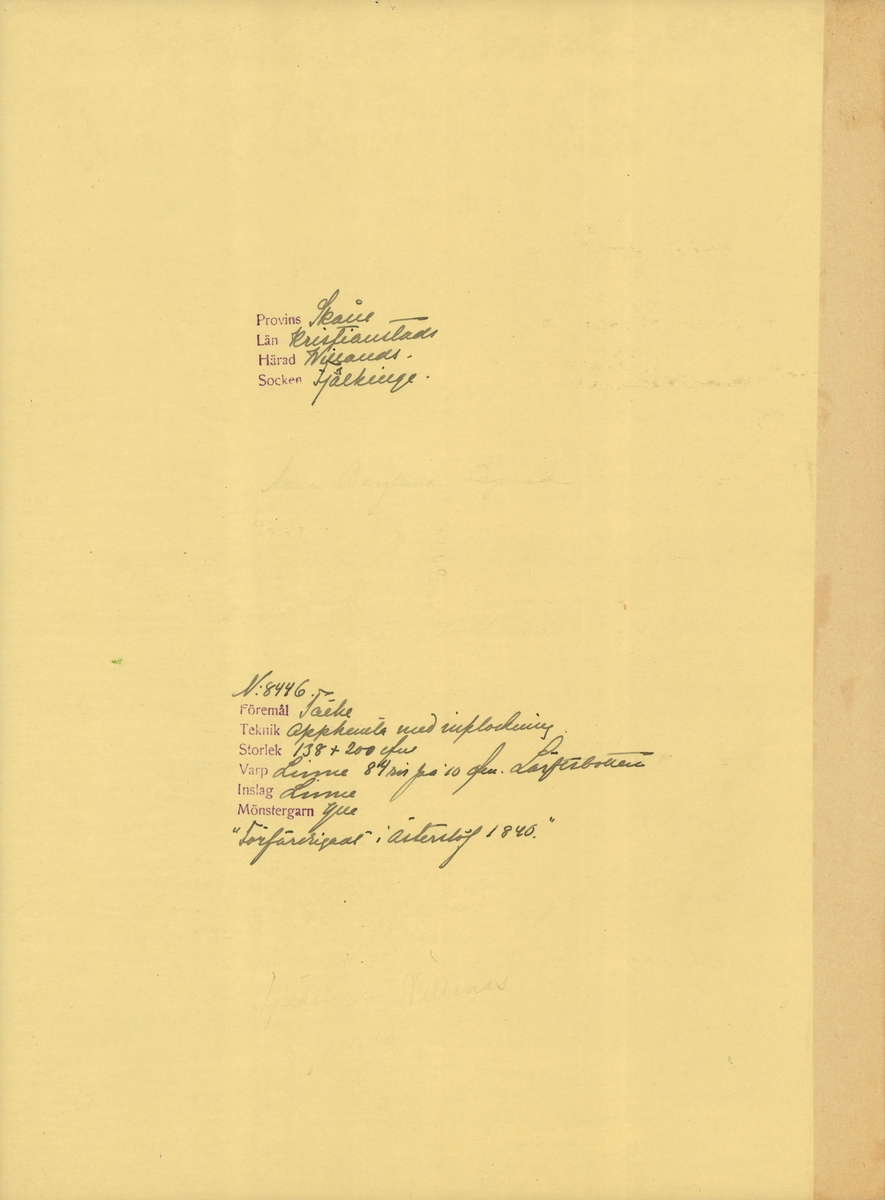 Provins Skåne
Län Kristianstads
Härad Willands.
Socken Fjälkinge.
Anna Berglund
N:8446.
Föremål Täcke
Teknik Opphämta med inplockning.
Storlek 138 + 200 cm
Varp Linne 84 rör på 10 cm. Lärftsbotten
Inslag Linne
Mönstergarn Ylle
"Förfärdigadt i Österslöf 1840."
Fjälkinge Villands